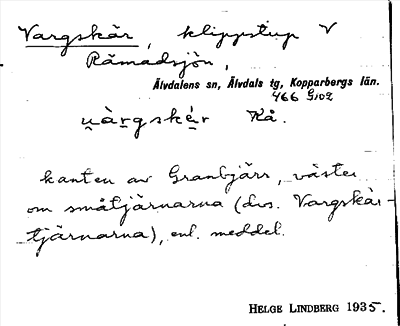 Vargskär, klippstup V
Råmadsjön,
Älvdalens sn, Älvdals tg, Kopparbergs län.
466 G102
u̯àrgskę́r Kå.
kanten av Granbjärr, väster
om småtjärnarna (dvs. Vargskär-
tjärnarna), enl. meddel.
HELGE LINDBERG 1935.